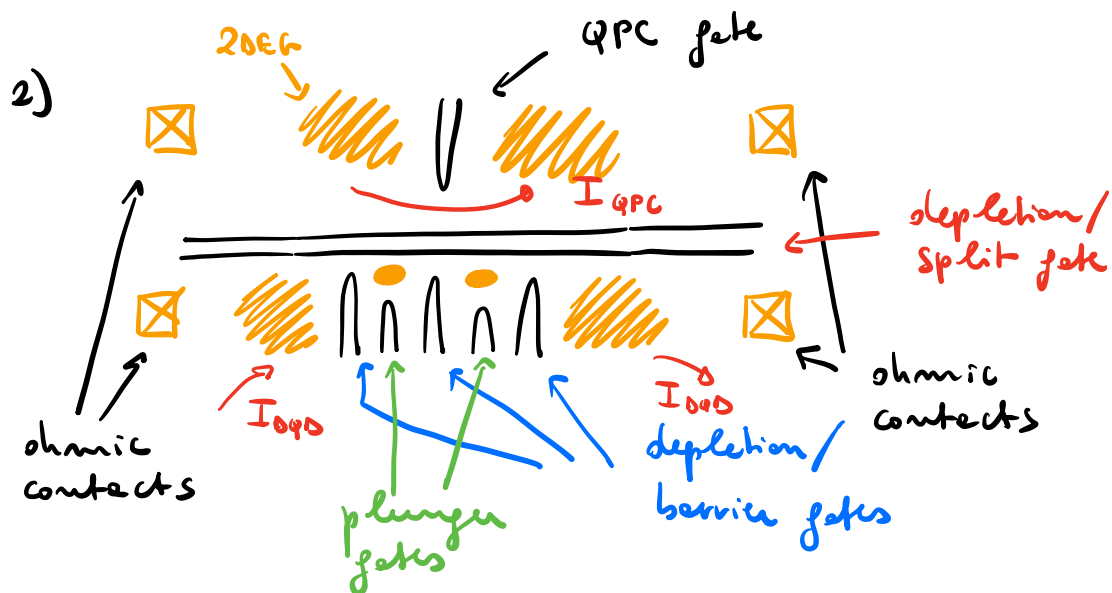 2)
2DEG
QPC gate
I QPC
depletion/
split gate
I DQD
I DQD
ohmic
contacts
ohmic
contacts
depletion/
barrier gates
plunger
gates